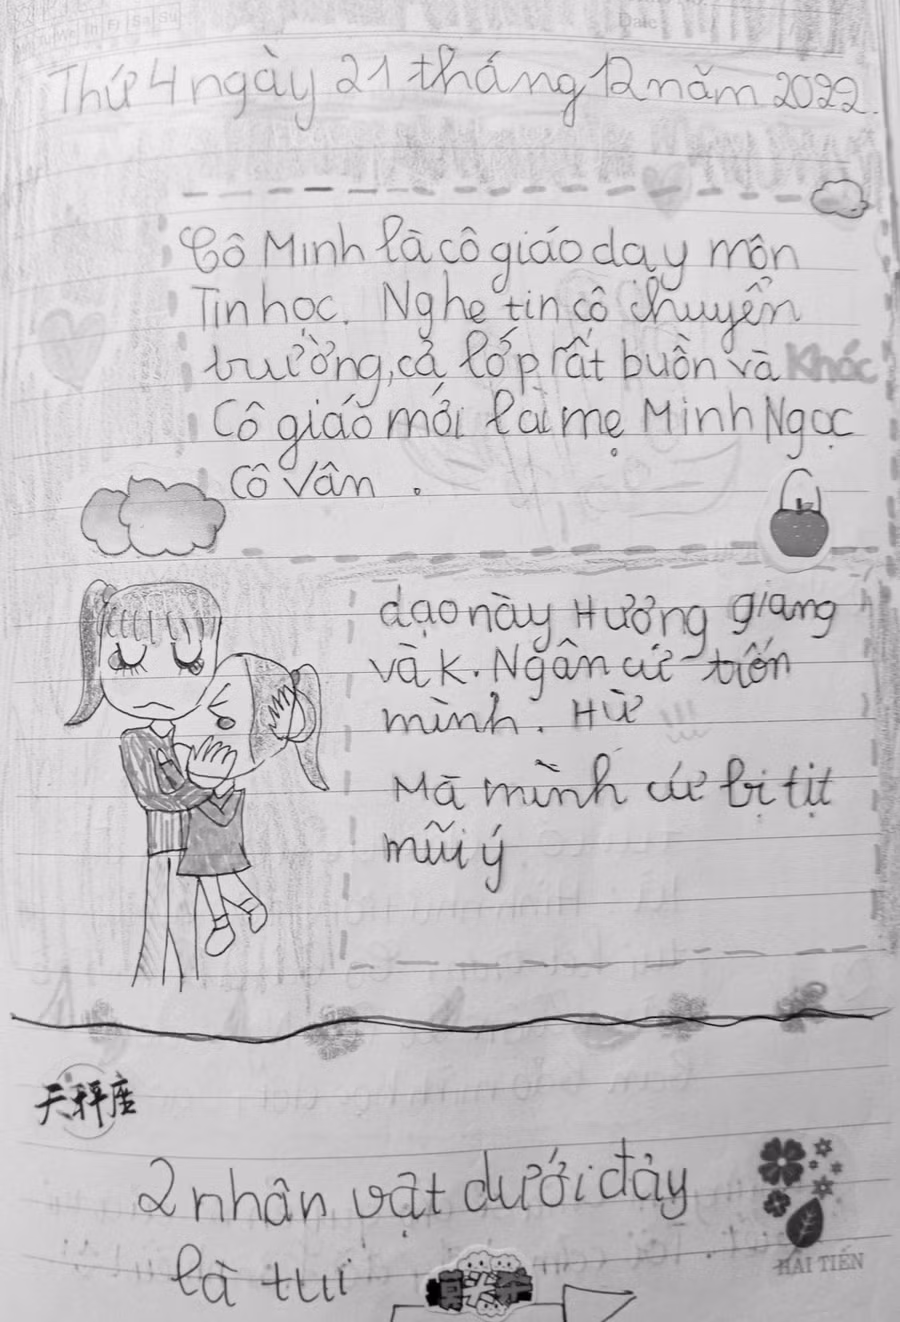 Fr Sa Su
Date
Thứ 4 ngày 21 tháng 12 năm 2022.
Cô Minh là cô giáo dạy môn
Tin học. Nghe tin cô chuyển
trường, cả lớp rất buồn và Khóc
Cô giáo mới là mẹ Minh Ngọc
Cô Vân.
dạo này Hương giang
và K. Ngân cứ
mình. Hừ
Mà mình cứ bị tịt
mũi ý
天秤座
2 nhân vật dưới đây
là tui
HẢI TIẾN